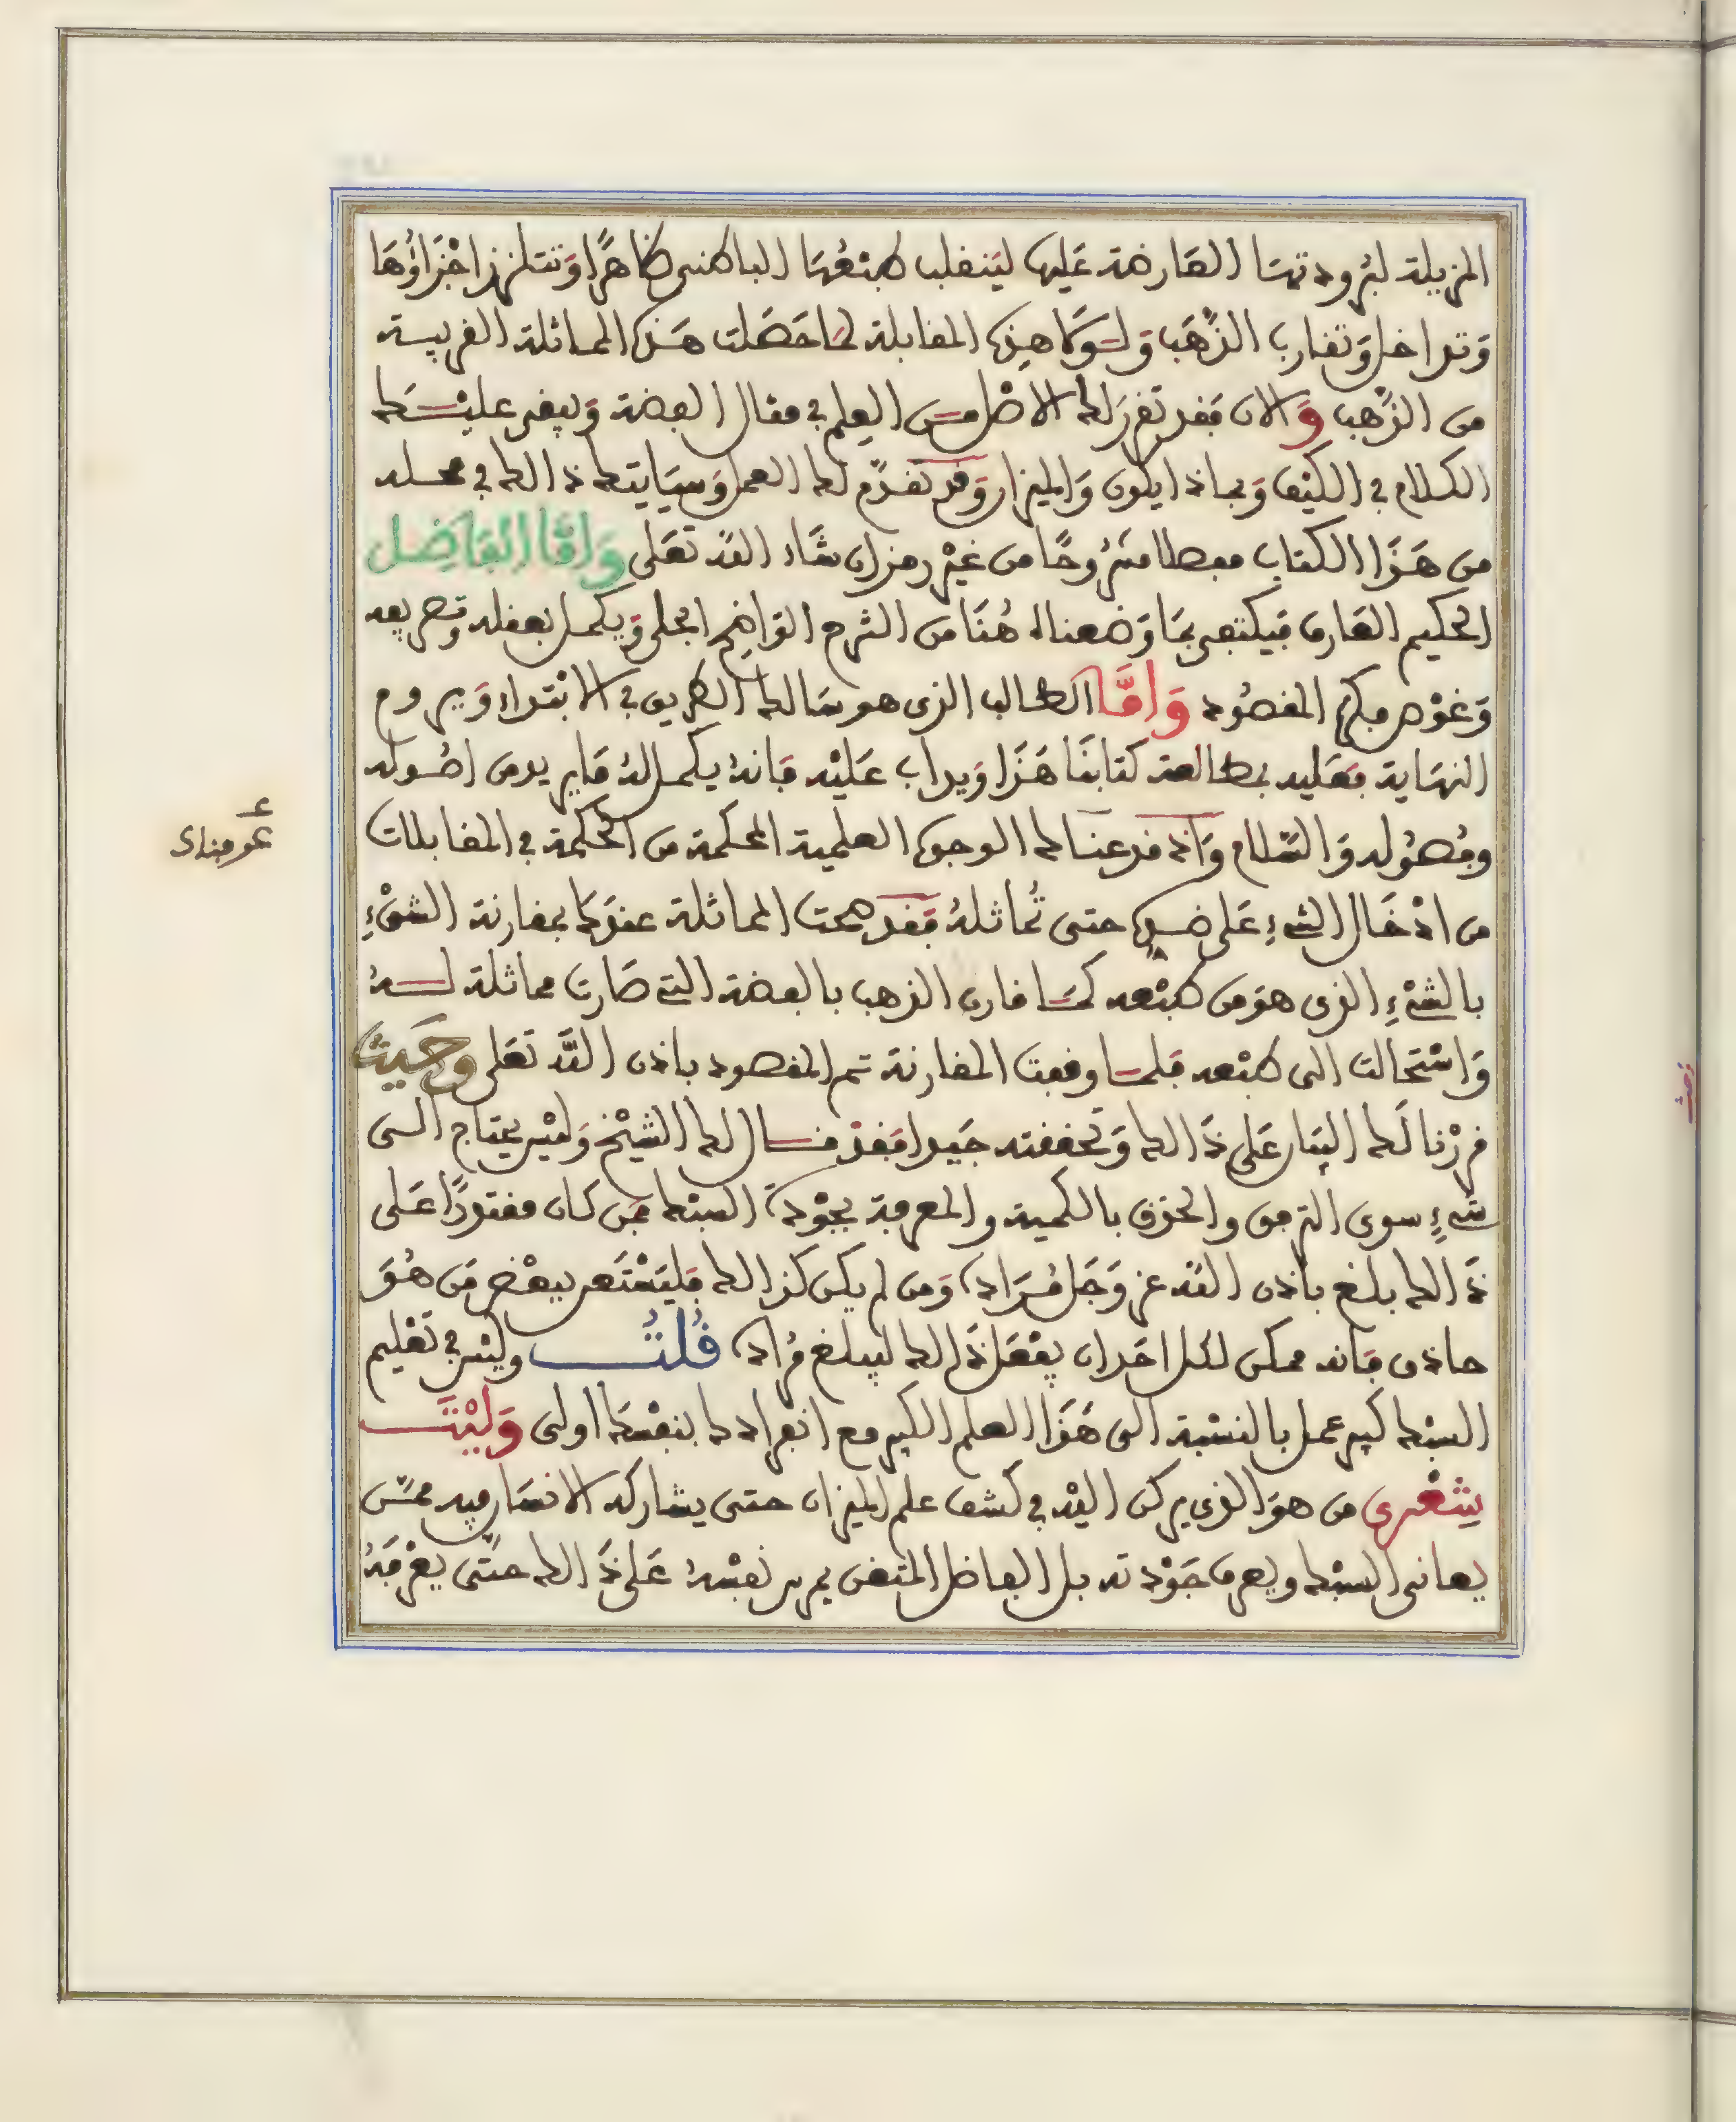 المزيلة لبرودتها العارضة عليها لينقلب طبعها الباطني ظاهرا وتتلزز اجزاؤها
وتداخل وتقارب الذهب ولولا هذه المقابلة لما حصلت هذه المماثلة القريبة
من الذهب والان فقد تقرر لك الاصل من العلم في مقال الفضة وبقي عليك
الكلام في الكيف وبماذا يكون والميزان وقد تقدم لك العمل وسياتيك ذالك في محله
من هذا الكتاب مفصلا مشروحا من غير رمز ان شاء الله تعلى واما الفاضل
الحكيم العارف فيكتفي بما وضعناه هنا من الشرح الواضح الجلي ويكمل بعقله وتصريفه
وغوص فكره المقصود واما الطالب الذي هو سالك الطريق في الابتداء ويروم
النهاية فعليه بمطالعة كتابنا هذا ويداب عليه فانه يكمل له ما يريد من اصوله
وفصوله والسلام واذ قد عرفناك الوجوه العلمية المحكمة من الحكمة في المقابلات
من ادخال الشيء على ضده حتى تماثله فقد صحت المماثلة عندك بمقارنة الشيء
بالشيء الذي هو من طبعه كما قارن الذهب بالفضة التي صارت مماثلة له
واستحالت الى طبعه فلما وقعت المقارنة تم المقصود باذن الله تعلى وحيث
قررنا لك البيان على ذالك وتحققته جيدا فقد قال لك الشيخ وليس يحتاج الى
شيء سوى الترفق والحذق بالكمية والمعرفة بجودة السبك فمن كان مقتدرا على
ذالك بلغ باذن الله عز وجل مراده ومن لم يكن كذالك فليستعن ببعض من هو
حاذق فانه ممكن لكل احد ان يفعل ذالك ليبلغ مراده قلت وليس في تعليم
السبك كبير عمل بالنسبة الى هذا العلم الكبير مع انفرادك بنفسك اولى وليت
شعري من هو الذي يركن اليه في كشف علم الميزان حتى يشاركه الانسان فيه ممن
يعاني السبك ويعرف جودته بل الفاضل المتقن يمرن نفسه على ذالك حتى يعرفه